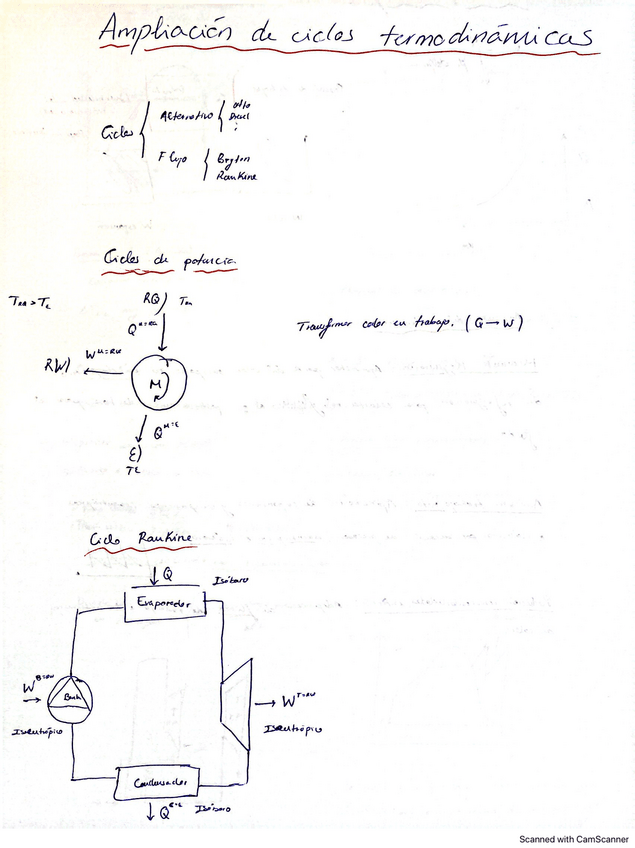 Ampliación de ciclos termodinámicas
Ciclos
Alternativo
otto
Diesel
Flujo
Bryton
Rankine
Ciclos de potencia
RQ)
W^M=RW
RW)
M
Q^M=E
E)
Transformar calor en trabajo. (Q→W)
Ciclo Rankine
Q
Isóbaro
Evaporador
W^B=RW
Isentrópico
W^T=RW
Isentrópico
Condensador
Isóbaro
Scanned with CamScanner